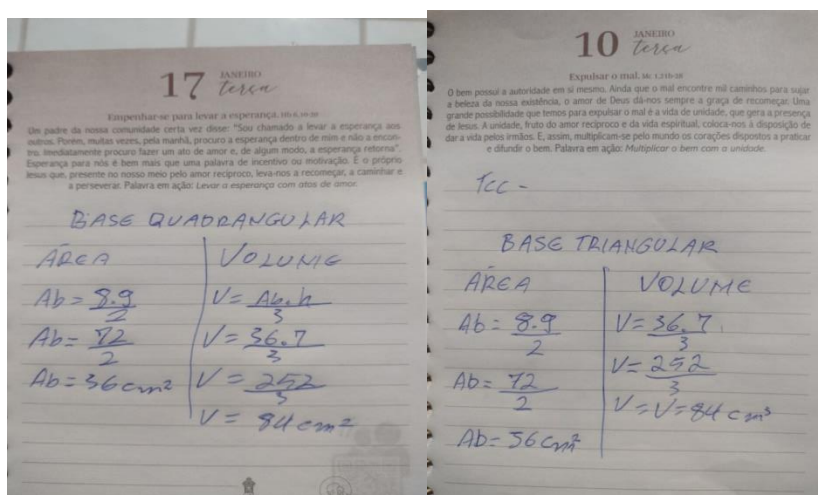 17 JANEIRO
terça
Empenhar-se para levar a esperança. Hb 6,10-20
Um padre da nossa comunidade certa vez disse: "Sou chamado a levar a esperança aos
outros. Porém, muitas vezes, pela manhã, procuro a esperança dentro de mim e não a encon-
tro. Imediatamente procuro fazer um ato de amor e, de algum modo, a esperança retorna".
Esperança para nós é bem mais que uma palavra de incentivo ou motivação. É o próprio
Jesus que, presente no nosso meio pelo amor recíproco, leva-nos a recomeçar, a caminhar e
a perseverar. Palavra em ação: Levar a esperança com atos de amor.
BASE QUADRANGULAR
ÁREA
Ab = 8.9
2
Ab = 72
2
Ab = 36 cm²
VOLUME
V = Ab.h
3
V = 36.7
3
V = 252
3
V = 84 cm²
10 JANEIRO
terça
Expulsar o mal. Mc 1,21b-28
O bem possui a autoridade em si mesmo. Ainda que o mal encontre mil caminhos para sujar
a beleza da nossa existência, o amor de Deus dá-nos sempre a graça de recomeçar. Uma
grande possibilidade que temos para expulsar o mal é a vida de unidade, que gera a presença
de Jesus. A unidade, fruto do amor recíproco e da vida espiritual, coloca-nos à disposição de
dar a vida pelos irmãos. E, assim, multiplicam-se pelo mundo os corações dispostos a praticar
e difundir o bem. Palavra em ação: Multiplicar o bem com a unidade.
TCC -
BASE TRIANGULAR
ÁREA
Ab = 8.9
2
Ab = 72
2
Ab = 36 cm²
VOLUME
V = 36.7
3
V = 252
3
V = V = 84 cm³